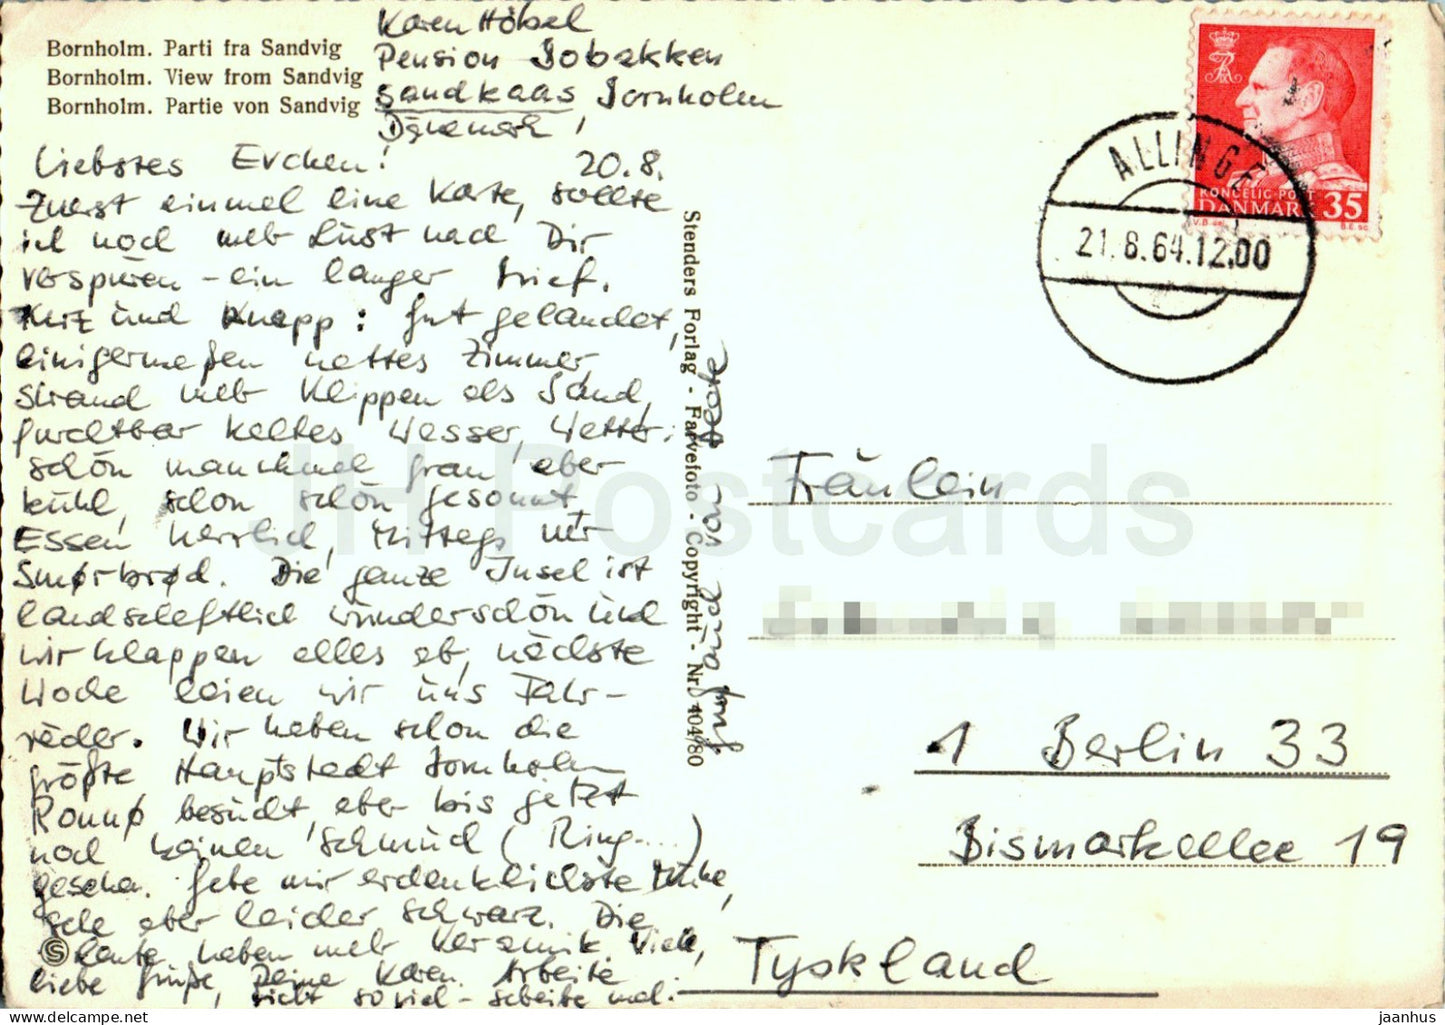 Bornholm. Parti fra Sandvig
Bornholm. View from Sandvig
Bornholm. Partie von Sandvig
Karen Höbel
Pension Sobakken
Sandkaas, Bornholm
Dänemark
Liebstes Evchen! 20.8.
Zuerst einmal eine Karte, sollte
ich noch mehr Lust nach Dir
verspüren – ein langer Brief.
Kurz und Knapp: gut gelandet,
einigermaßen nettes Zimmer,
Strand mehr Klippen als Sand,
furchtbar kaltes Wasser, Wetter:
schön manchmal grau aber
kühl, schon schön gesonnt,
Essen herrlich, Mittags nur
Smørbrød. Die ganze Insel ist
landschaftlich wunderschön und
wir klappen alles ab, nächste
Woche leien wir uns Fahr-
räder. Wir haben schon die
größte Hauptstadt Bornholm
Rønnø besucht, aber bis jetzt
noch keinen Schmuck (Ring....)
gesehen. Gebe mir erdenklichste Mühe,
sehe aber leider schwarz. Die
Leute haben mehr Keramik. Viele,
liebe Grüße, Deine Karen. Arbeite
nicht so viel – scheibe mal.
Gruß auch von
Stenders Forlag - Farvefoto - Copyright - Nr. 104/80
KONGELIG POST
DANMARK 35
ALLINGE
21.8.64.12.00
Fräulein
1 Berlin 33
Bismarkallee 19
Tyskland
JH Postcards
jaanhus